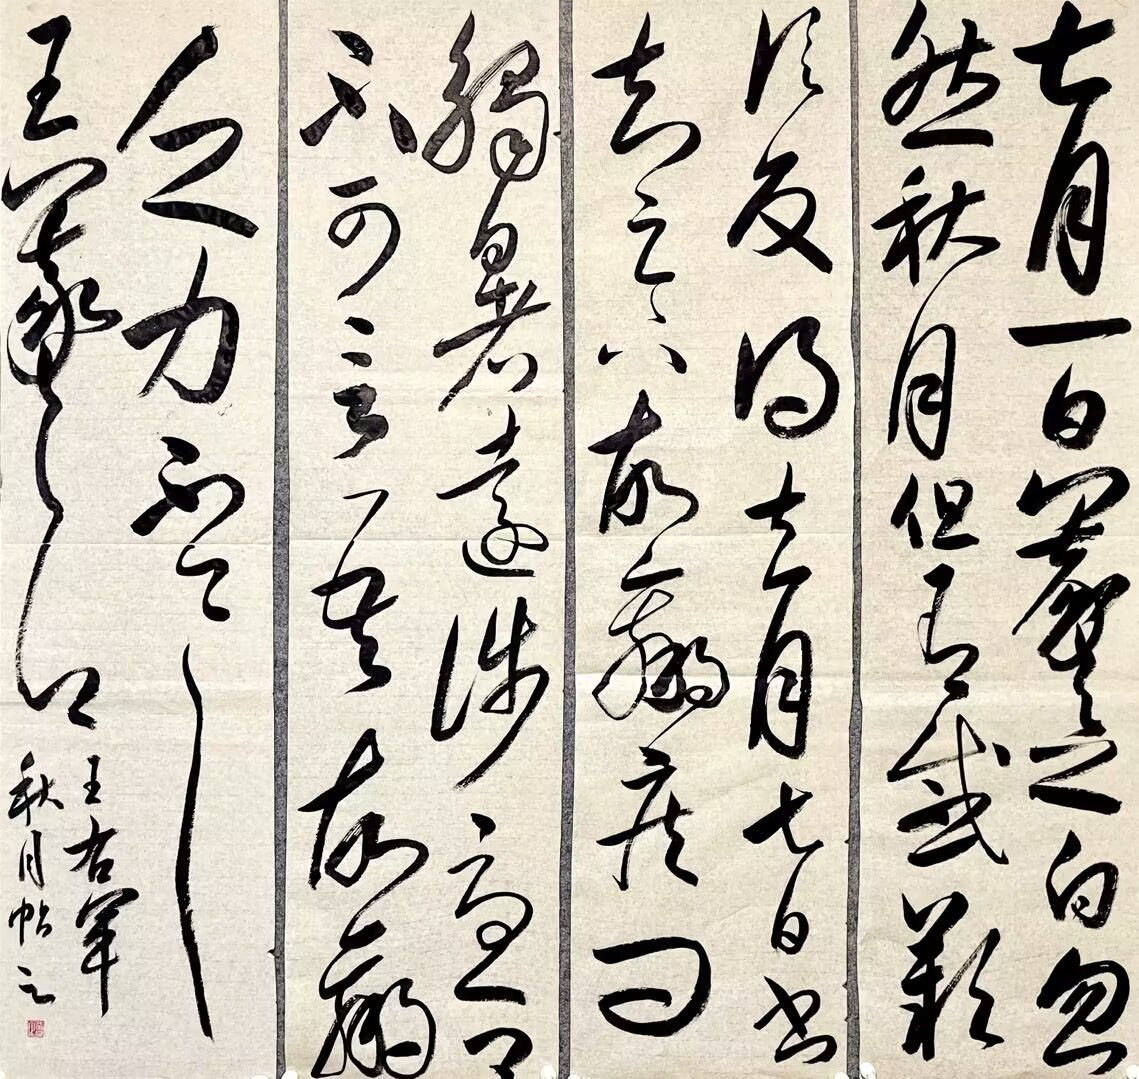 七月一日羲之白忽
然秋月但有感歎
信反得去月七日書
知足下故羸疾問
觸暑遠涉憂卿
不可言吾故羸
乏力不具
王羲之白
王右軍
秋月帖